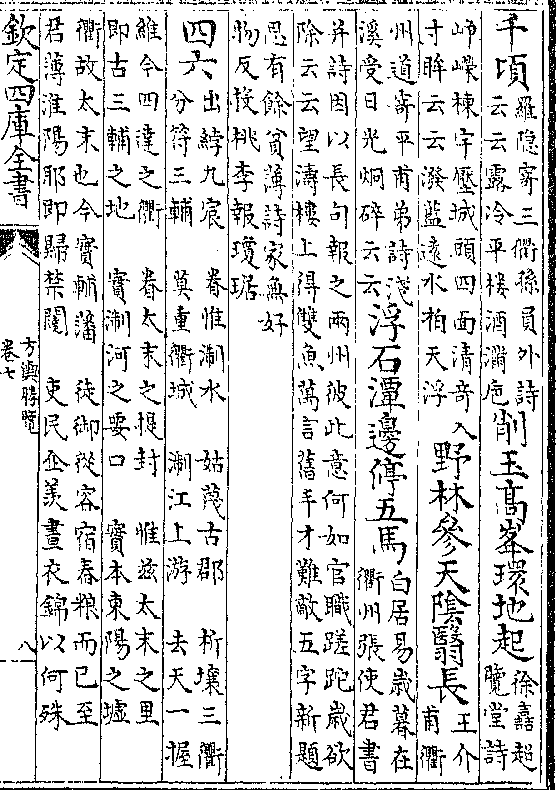 千頃
羅隱寄三衢孫員外詩
云云露冷平樓酒滿巵
削玉髙峯環地起
徐嘉超
覽堂詩
嶸棟宇壓城頭四面清竒入
寸眸云云潑藍逺水拍天浮
野林參天陰翳長
王介
甫衢
州道寄平甫弟詩淺
溪受日光炯碎云云
浮石潭邊停五馬
白居易歳暮在
衢州張使君書
并詩因以長句報之兩州彼此意何如官職蹉跎歳欲
除云云望濤樓上得雙魚萬言舊手才難敵五字新題
思有餘貧薄詩家無好
物反投桃李報瓊琚
四六
出綍九宸　眷惟淛水　姑蔑古郡　析壤三衢
分符三輔　莫重衢城　淛江上游　去天一握
維今四達之衢　眷太末之提封　惟兹太末之里
即古三輔之地　實淛河之要口　實本東陽之墟
衢故太末也今實輔藩　徒御從容宿舂粮而已至
君薄淮陽耶即歸禁闥　吏民企羨晝衣錦以何殊
欽定四庫全書
方輿勝覽
卷七
八